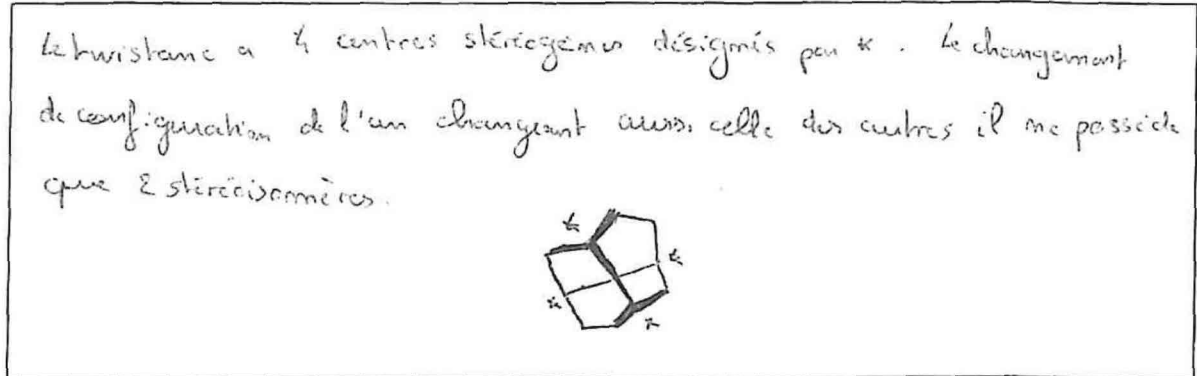 Le twistane a 4 centres stéréogènes désignés par *. Le changement
de configuration de l'un changeant aussi celle des autres il ne possède
que 2 stéréoisomères.
*
*
*
*